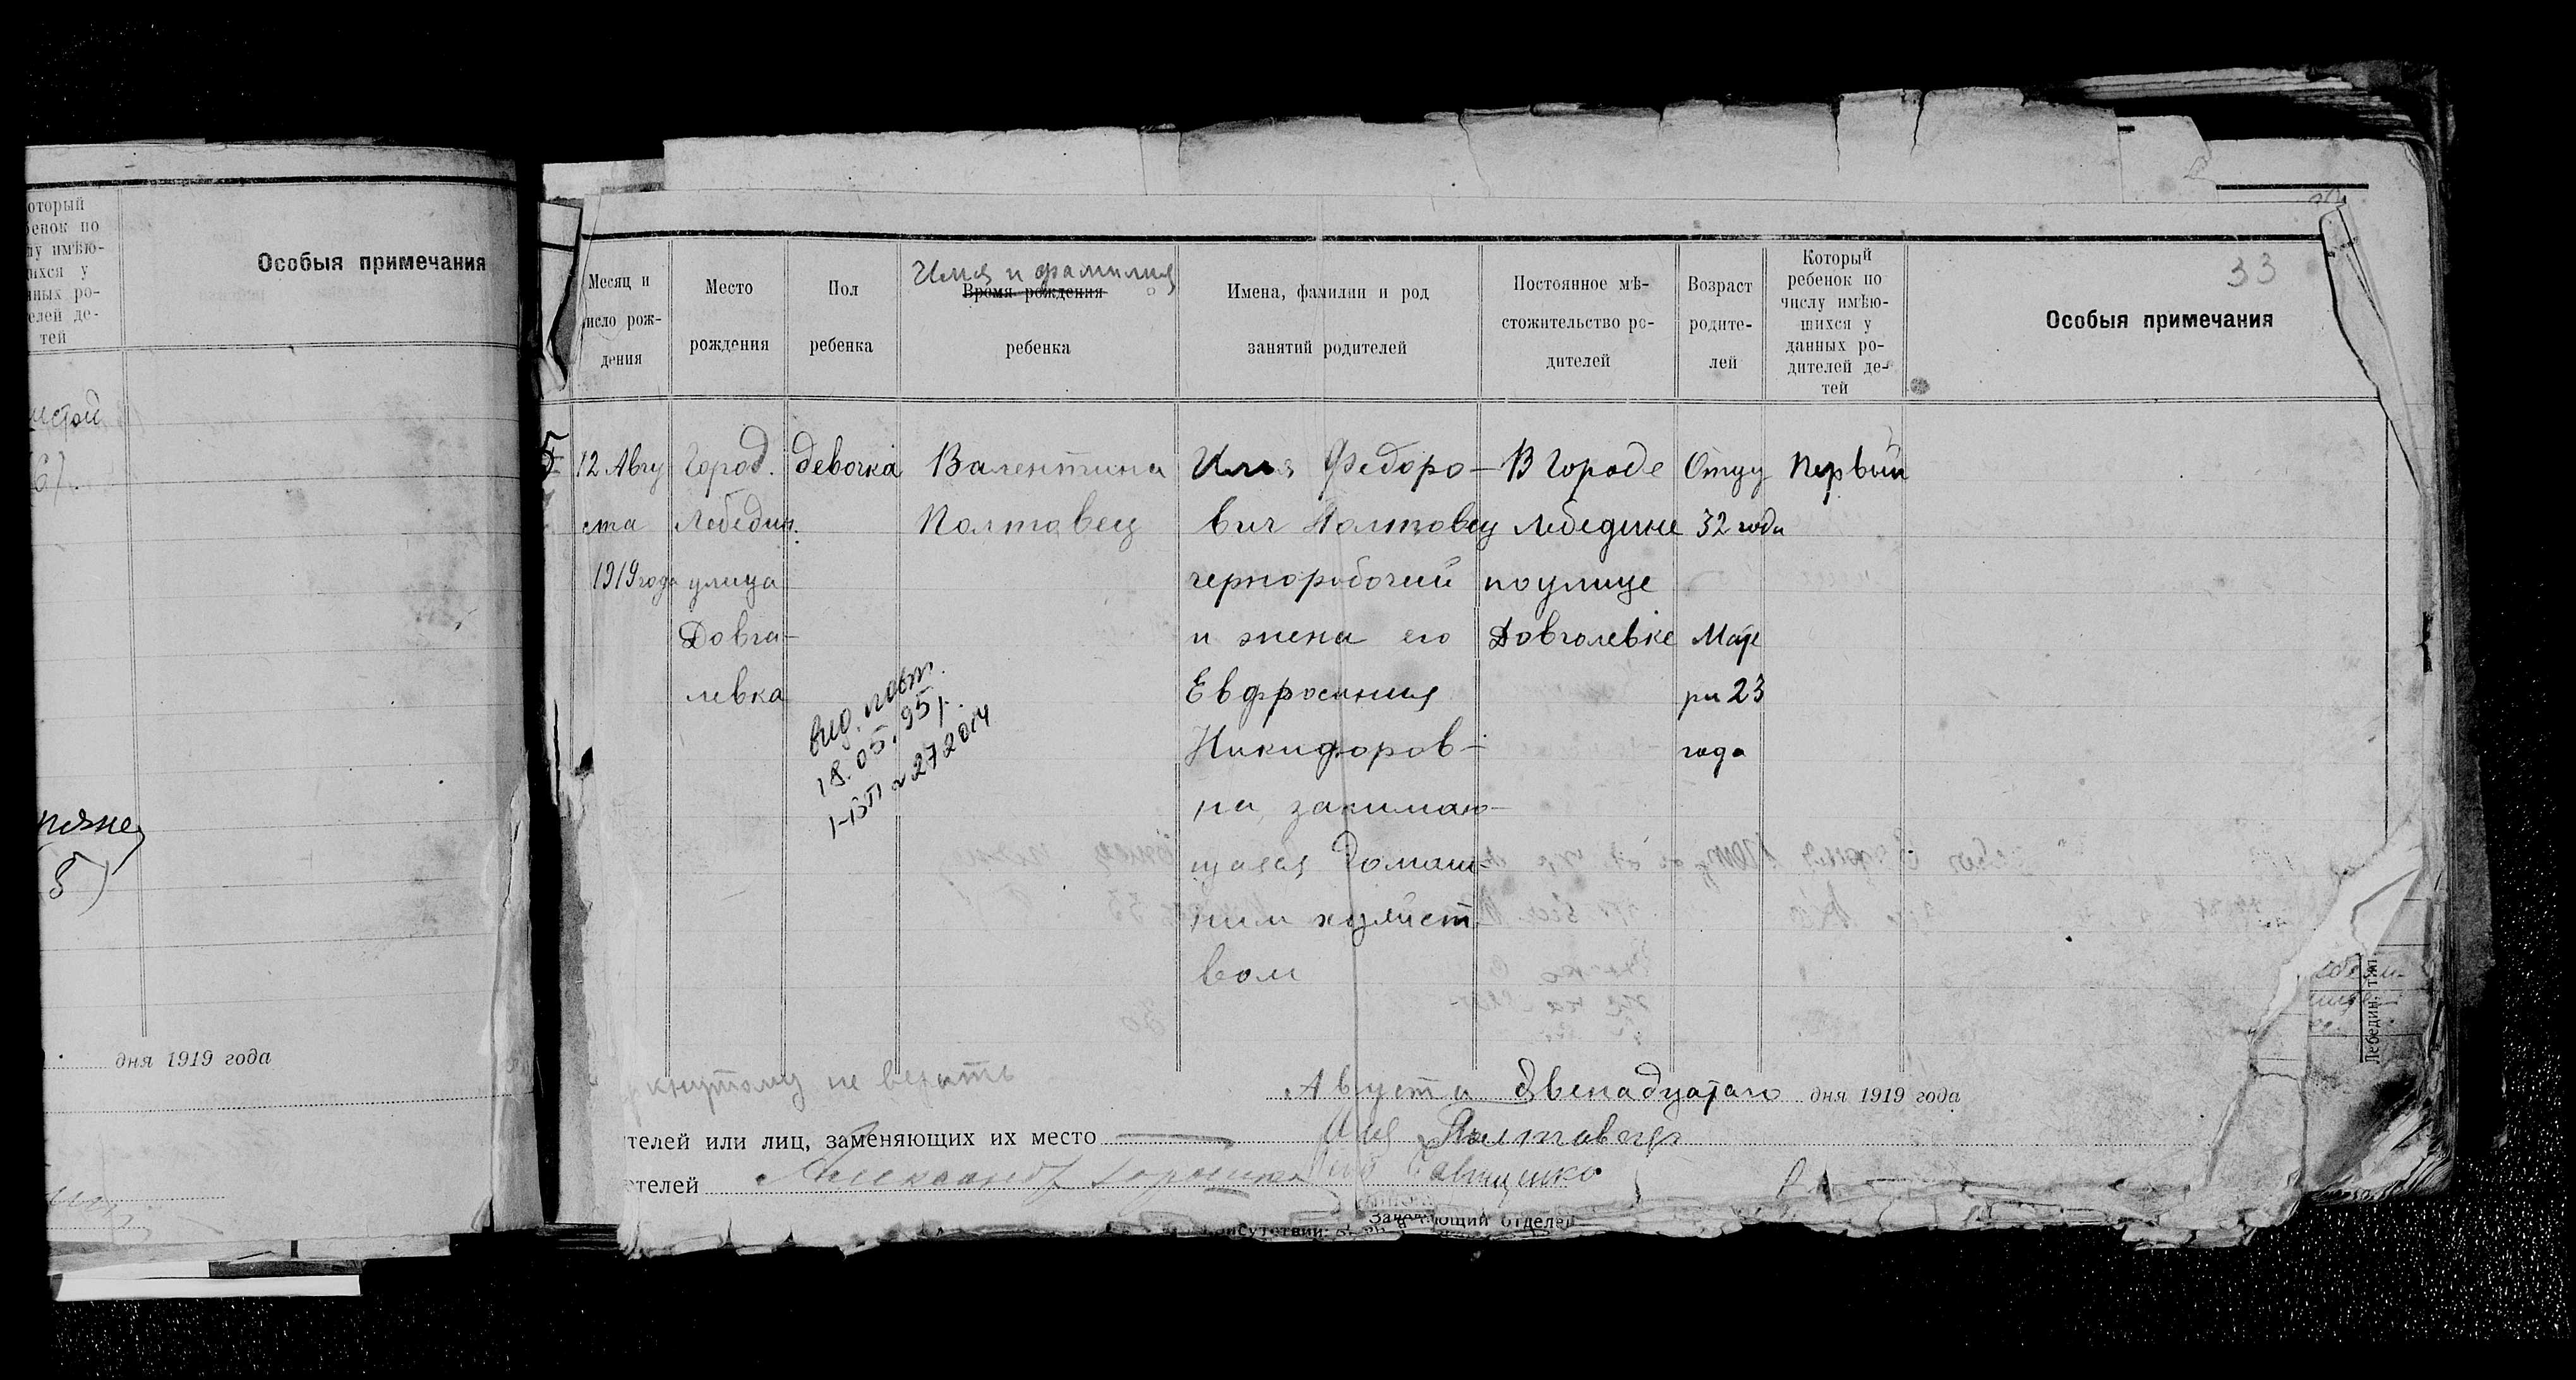 оторый
бенок по
лу имѣю-
ихся у
нных ро-
елей де-
тей
Особыя примечания
дня 1919 года
33
Месяц и
число рож-
дения
Место
рождения
Пол
ребенка
Имя и фамилия
Время рождения
ребенка
Имена, фамилии и род
занятий родителей
Постоянное мѣ-
стожительство ро-
дителей
Возраст
родите-
лей
Который
ребенок по
числу имѣю-
шихся у
данных ро-
дителей де-
тей
Особыя примечания
5
12 Авгу
ста
1919 года
Город.
Лебедин.
улица
Довга-
левка
девочка
Валентина
Полтавец
Илья Федоро-
вич Полтавец
чернорабочий
и жена его
Евфросиния
Никифоров-
на, занимаю-
щаяся домаш-
ним хозяйст
вом
В Городе
Лебедине
по улице
Довгалевке
Отцу
32 года
Мате
ри 23
года
Первый
вид. повт.
18.05.95г.
I-БП № 272014
не верить
Августа Двенадцатаго дня 1919 года
телей или лиц, заменяющих их место Илья Полтавец
етелей Александр
Заведующий отделен
Лебедин. тип